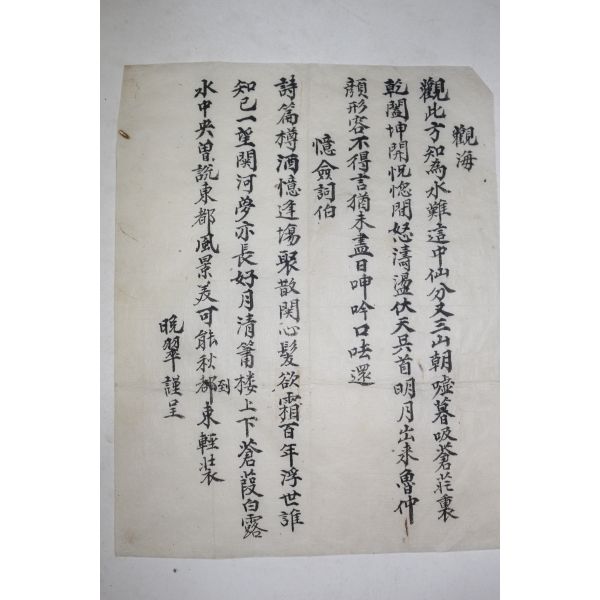 觀海
觀此方知為水難這中仙分又三山朝噓暮吸蒼茫裏
乾闔坤開怳惚間怒濤盪伏天兵首明月出来魯仲
顔形容不得言猶未盡日呻吟口呿還
憶僉詞伯
詩篇樽酒憶逢場聚散関心髮欲霜百年浮世誰
知己一望関河夢亦長好月清簫樓上下蒼葭白露
水中央曽說東都風景美可能秋到都東輕裝
晩翠謹呈